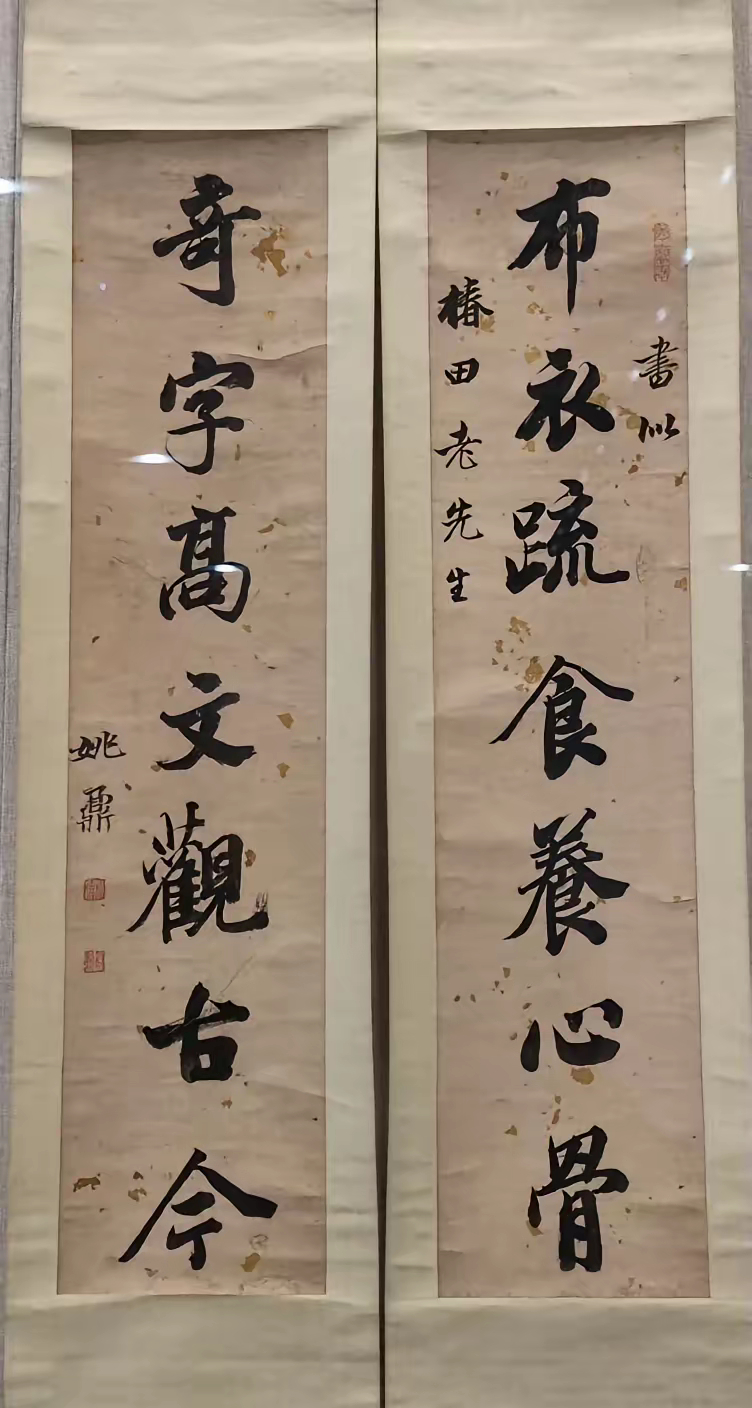 布衣疏食養心骨
書似
椿田老先生
奇字高文觀古今
姚鼐